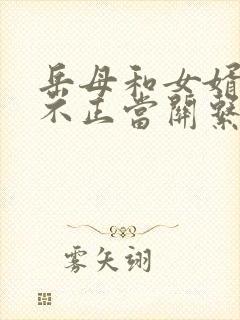 岳母和女婿
不正当關繫
雾矢翊